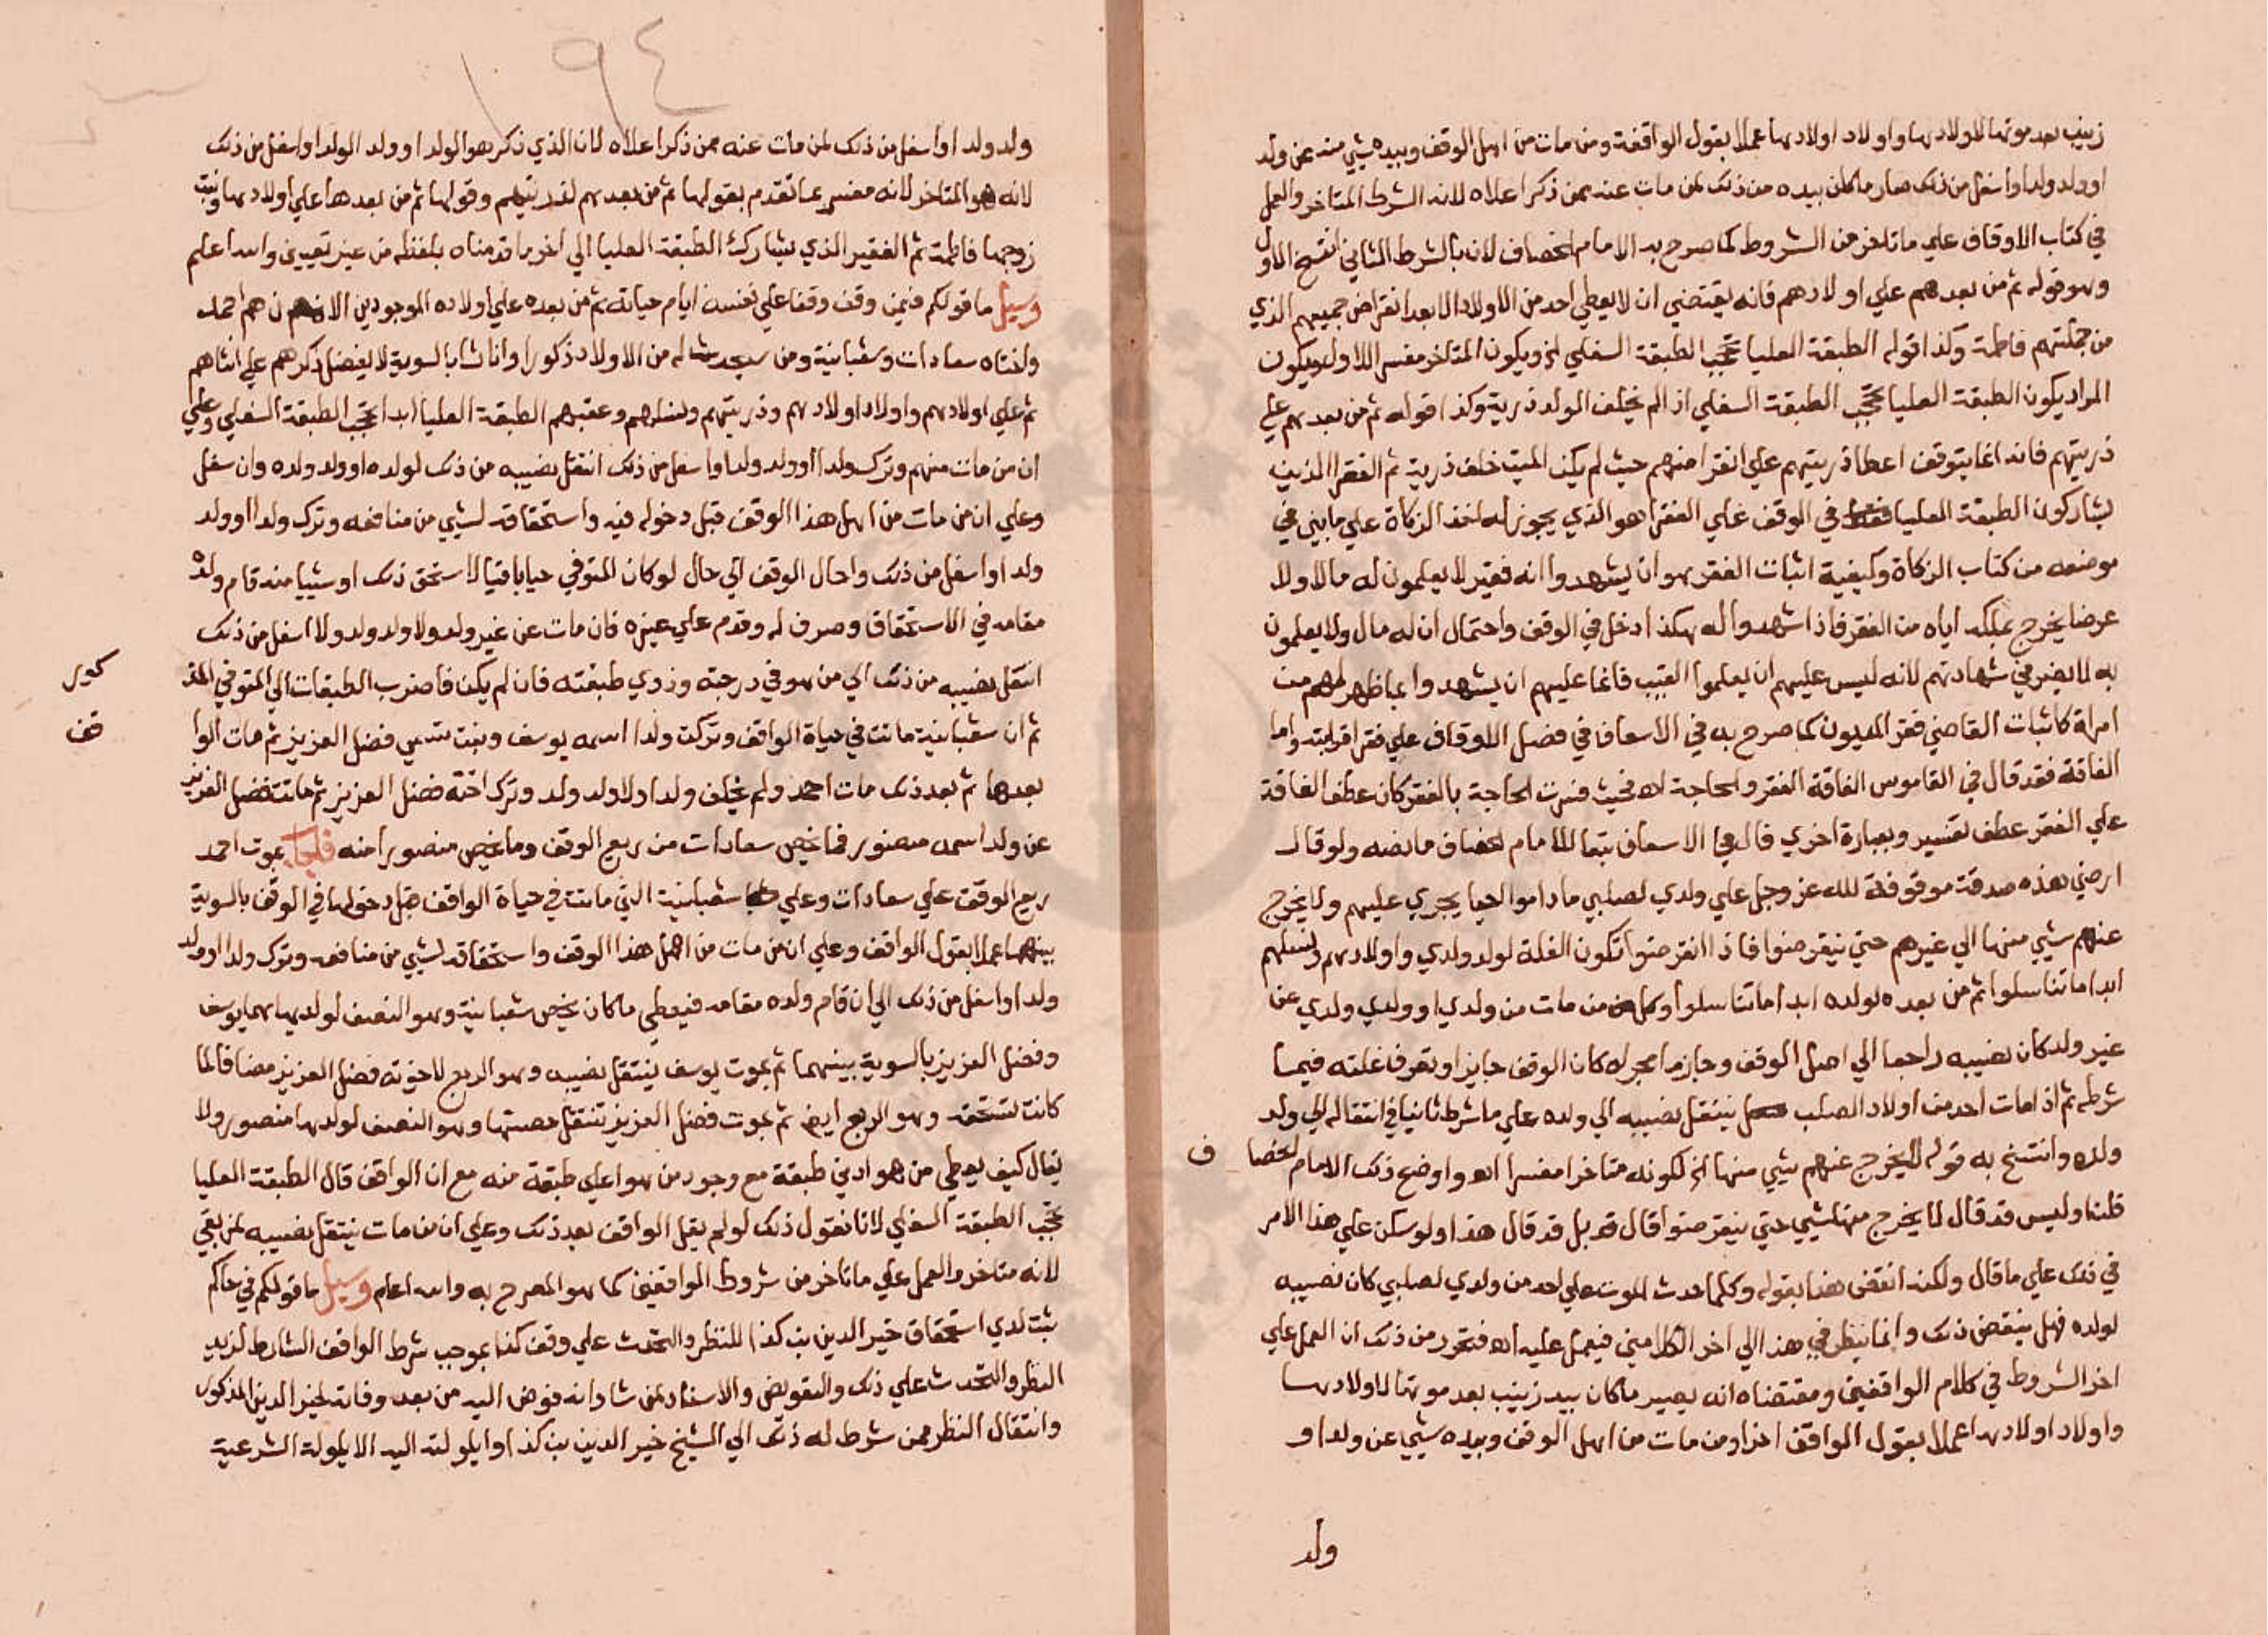 زينب بعد موتها لاولادها واولاد اولادها عملا بقول الواقفة ومن مات من اهل الوقف وبيده شيئ منه عن ولد
او ولد ولد او اسفل من ذلك صار ما كان بيده من ذلك لمن مات عنه ممن ذكر اعلاه لانه الشرط المتاخر والعمل
في كتاب الاوقاف علي ما تاخر من الشروط كما صرح به الامام الخصاف لان بالشرط الثاني انفسخ الاول
وهو قوله ثم من بعدهم علي اولادهم فانه يقتضي ان لا يعطي احد من الاولاد الا بعد انقراض جميعهم الذي
من جملتهم فاطمة وكذا قوله الطبقة العليا تحجب الطبقة السفلي لخ ويكون المتاخر مفسر للاول ويكون
المراد يكون الطبقة العليا تحجب الطبقة السفلي اذ الم يخلف الولد ذرية وكذا قوله ثم من بعدهم علي
ذريتهم فانه انما يتوقف اعطا ذريتهم علي انقراضهم حيث لم يكن الميت خلف ذرية ثم الفقر الذين
يشاركون الطبقة العليا في الوقف علي الفقرا هو الذي يجوز له اخذ الزكاة علي ما بين في
موضعه من كتاب الزكاة وكيفية اثبات الفقر هو ان يشهدوا انه فقير لا يعلمون له مالا ولا
عرضا يخرج بملكه اياه من الفقر فاذا شهدوا له بهكذا دخل في الوقف واحتمال ان له مال ولا يعلمون
به لا يضر في شهادتهم لانه ليس عليهم ان يعلموا الغيب فانما عليهم ان يشهدوا بما ظهر لهم من
امراة كاثبات القاضي فقر المديون كما صرح به في الاسعاف في فصل الاوقاف علي فقرا قرابته واما
الفاقة فقد قال في القاموس الفاقة الفقر والحاجة اه فحيث فسرت الحاجة بالفقر كان عطف الفاقة
علي الفقر عطف تفسير وبعبارة اخري قال في الاسعاف تبعا للامام الخصاف ما نصه ولو قال
ارضي هذه صدقة موقوفة لله عز وجل علي ولدي لصلبي ما داموا احيا يجري عليهم ولا يخرج
عنهم شيي منها الي غيرهم حتي ينقرضوا فاذا انقرضوا تكون الغلة لولد ولدي واولادهم ونسلهم
ابدا ما تناسلوا ثم من بعده لولده ابدا ما تناسلوا وكل من مات من ولدي او ولدي ولدي عن
غير ولد كان نصيبه راجعا الي اصل الوقف وجاز ما اجراه كان الوقف جايزا وتصرف غلته فيما
شرطه ثم اذا مات احد من اولاد الصلب ينتقل نصيبه الي ولده علي ما شرط ثانيا في انتقاله الي ولد
ولده وانتسخ به قوله لا يخرج عنهم شيي منها الخ لكونه متاخرا مفسرا اه واوضح ذلك الامام الخصا
ف
قلنا وليس قد قال لا يخرج منها شيي حتي ينقرضوا قال قد بل قد قال هذا ولو سكن علي هذا الامر
في ذلك علي ما قال ولكنه انقض هذا بقوله وكلما حدث الموت علي احد من ولدي لصلبي كان نصيبه
لولده فهل ينقض ذلك وانما ينظر في هذا الي اخر الكلامين فيعمل عليه اه فتحرر من ذلك ان العمل علي
اخر الشروط في كلام الواقفين ومقتضاه انه يصير ما كان بيد زينب بعد موتها لاولادها
واولاد اولادها عملا بقول الواقف اخرا ومن مات من اهل الوقف وبيده شيي عن ولد او
ولد
١٩٤
ولد ولد او اسفل من ذلك لمن مات عنه ممن ذكر اعلاه لان الذي ذكر هو الولد او ولد الولد او اسفل من ذلك
لانه هو المتاخر لانه مفسر عما تقدم بقولها ثم من بعدهم لذريتهم وقولها ثم من بعدها علي اولادها وبنت
زوجها فاطمة ثم الفقير الذي يشارك الطبقة العليا الي اخر ما قدمناه بلفظه من غير تعيين والله اعلم
وسيل ما قولكم فيمن وقف وقفا علي نفسه ايام حياته ثم من بعده علي اولاده الموجودين الان هم احمد
واختاه سعادات وشعبانية ومن سيحدث له من الاولاد ذكورا واناثا بالسوية لا يفضل ذكرهم علي انثاهم
ثم علي اولادهم واولاد اولادهم وذريتهم ونسلهم وعقبهم الطبقة العليا ابدا تحجب الطبقة السفلي وعلي
ان من مات منهم وترك ولدا او ولد ولد او اسفل من ذلك انتقل نصيبه من ذلك لولده او ولد ولده وان سفل
وعلي ان من مات من اهل هذا الوقف قبل دخوله فيه واستحقاقه لشيي من منافعه وترك ولدا او ولد
ولد او اسفل من ذلك واحال الوقف الي حال لو كان المتوفي حيا باقيا لاستحق ذلك او شييا منه قام ولده
مقامه في الاستحقاق وصرف له وقدم علي غيره فان مات عن غير ولد ولا ولد ولد ولا اسفل من ذلك
انتقل نصيبه من ذلك الي من هو في درجته وذوي طبقته فان لم يكن فاضرب الطبقات الي المتوفي المذ
كور
ثم ان شعبانية ماتت في حياة الواقف وتركت ولدا اسمه يوسف وبنت تسمي فضل العزيز ثم مات الوا
قف
بعدها ثم بعد ذلك مات احمد ولم يخلف ولدا ولا ولد ولد وترك اخته فضل العزيز ثم ماتت فضل العزيز
عن ولد اسمه منصور فما يخص سعادات من ريع الوقف وما يخص منصور امنه فاجاب بموت احمد
ريع الوقف علي سعادات وعلي شعبانية التي ماتت في حياة الواقف قبل دخولها في الوقف بالسوية
بينهما عملا بقول الواقف وعلي ان من مات من اهل هذا الوقف واستحقاقه لشيي من منافعه وترك ولدا او ولد
ولد او اسفل من ذلك الي ان قام ولده مقامه فيعطي ما كان يخص شعبانية وهو النصف لولديها هما يوسف
وفضل العزيز بالسوية بينهما ثم بموت يوسف ينتقل نصيبه وهو الربع لاخوته فضل العزيز مضافا لما
كانت تستحقه وهو الربع ايض ثم بموت فضل العزيز تنتقل حصتها وهو النصف لولدها منصور ولا
يقال كيف يعطي من هو ادني طبقة مع وجود من هو اعلي طبقة منه مع ان الواقف قال الطبقة العليا
تحجب الطبقة السفلي لانا نقول ذلك لو لم يقل الواقف بعد ذلك وعلي ان من مات ينتقل نصيبه لمن بقي
لانه متاخر والعمل علي ما تاخر من شروط الواقفين كما هو المصرح به والله اعلم وسيل ما قولكم في حاكم
ثبت لدي استحقاق خير الدين بن كذا للنظر والتحدث علي وقف كذا بموجب شرط الواقف الشارط لزيد
النظر والتحدث علي ذلك والتفويض والاسناد لمن شا وانه فوض اليه من بعد وفاته لخير الدين المذكور
وانتقال النظر ممن شرط له ذلك الي الشيخ خير الدين بن كذا وايلولته اليه الايلولة الشرعية